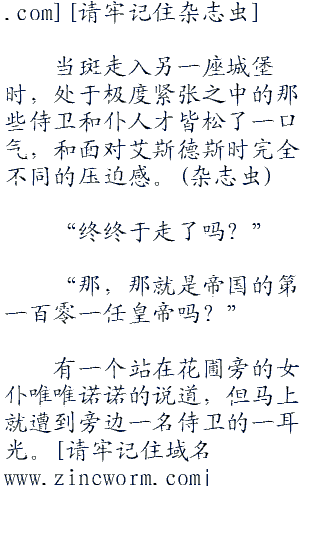 .com][请牢记住杂志虫]
当斑走入另一座城堡
时，处于极度紧张之中的那
些侍卫和仆人才皆松了一口
气，和面对艾斯德斯时完全
不同的压迫感。(杂志虫)
“终终于走了吗？”
“那，那就是帝国的第
一百零一任皇帝吗？”
有一个站在花圃旁的女
仆唯唯诺诺的说道，但马上
就遭到旁边一名侍卫的一耳
光。[请牢记住域名
www.zincworm.com¡